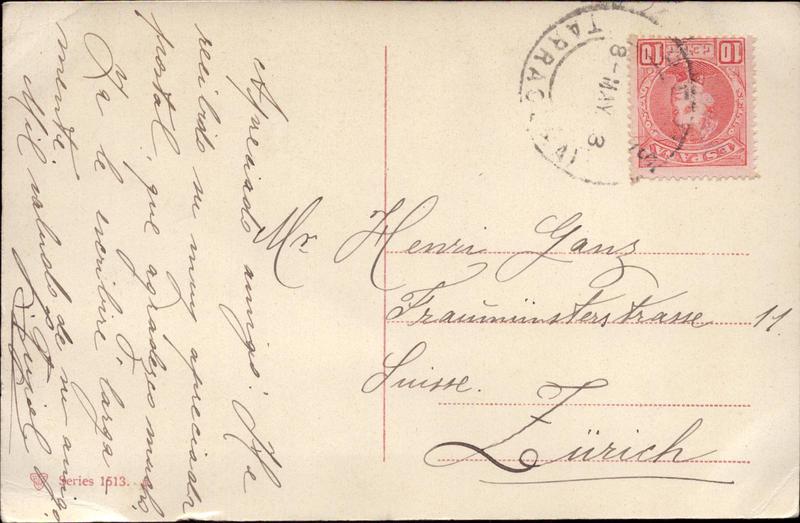 Apreciado amigo: He
recibido su muy apreciada
postal, que agradezco mucho.
Ya le escribiré larga-
mente.
Mil saludos de su amigo
Mr. Henri Ganz
Fraumünsterstrasse 11
Suisse.
Zürich
TARRAGONA
8-MAY 3
10 CENT 10
ESPAÑA
Series 1513.